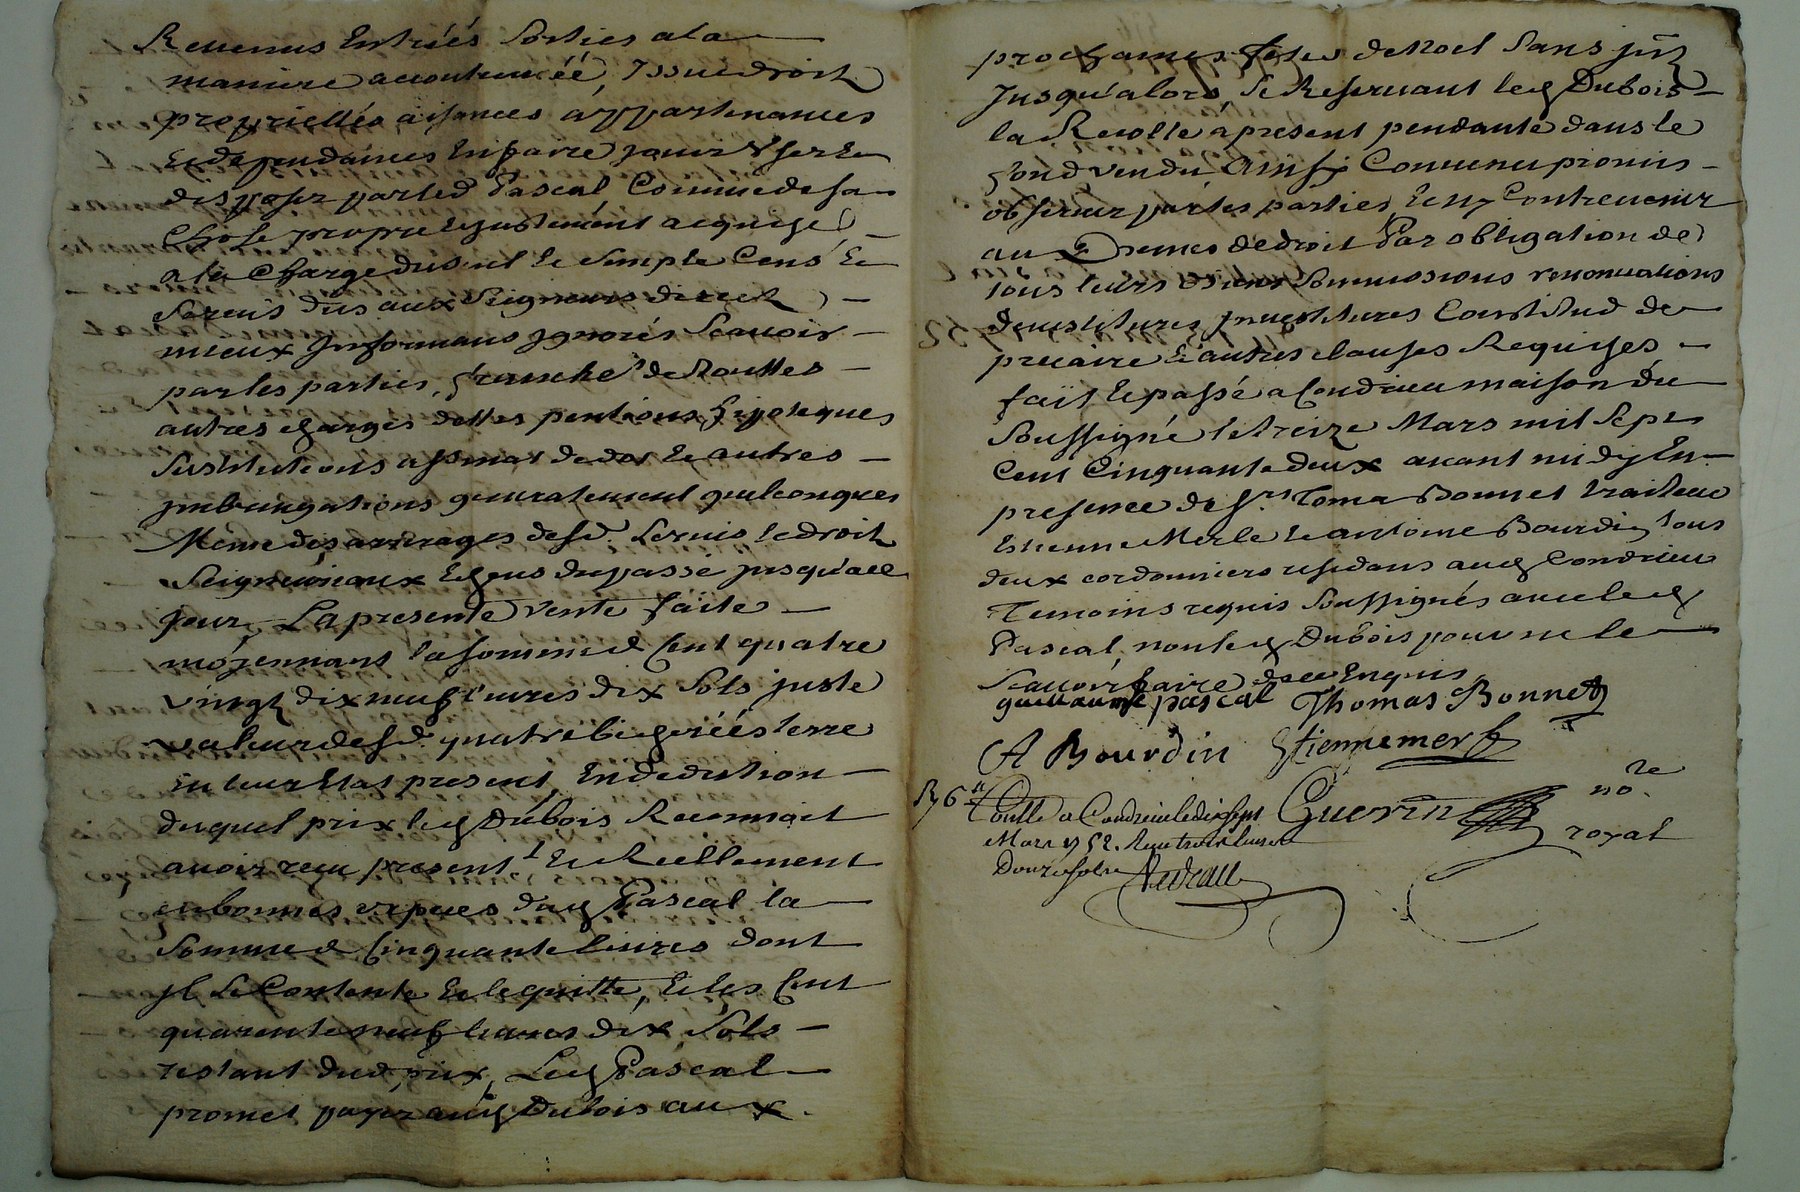 Revenus Entrées Sorties a la
maniere accoutumée, Issue droit
proprietés aisances appartenances
Et dependances En faire jouir User Et
disposer par led Pascal Comme de sa
Chose propre et justement acquise
a la Charge du seul Et simple Cens Et
Servis dus aux Seigneurs direct
mieux Informans Ignorés Scavoir
par les parties, franche de touttes
autres charges dettes pentions hipoteques
Sustitutions assinat de dot Et autres
Imbringations generalement quelconques
Meme des arrerages desd. Servis Et droit
Seigneuriaux Echeus du passé jusqu'a ce
jour, La presente vente faite
moyennant la somme de Cent quatre
vingt dix neuf livres dix Sols juste
valeur desd. quatre bicherées terre
en leur Etat present, En deduction
duquel prix led Dubois Reconnoit
avoir reçu present.t Et Reellement
en bonnes especes dud Pascal la
Somme de Cinquante livres dont
Jl Se Contente Et le quitte, Et les Cent
quarente neuf livres dix Sols
restant dud prix, Led Pascal
promet payer aud Dubois aux
prochaines fetes de Noel Sans
Jusqu'alors, Se Reservant led Dubois
la Recolte a present pendante dans le
fond vendu, Ainsi Convenu promis
observer par les parties, Et n'y Contrevenir
aux peines de droit Par obligation de
tous leurs biens Soumissions renonciations
devestitures Investitures Constitud de
precaire Et autres clauses Requises
fait Et passé a Condrieu maison du
Soussigné le treize Mars mil Sept
Cent Cinquante deux avant midy En
presence de Sr. Toma Bonnet
Etienne Merle Et antoine Bourdin tous
deux cordonniers residans aud Condrieu
Temoins requis Soussignés avec led
Pascal, non led Dubois pour ne le
Scavoir faire de ce Enquis
guillaume pascal Thomas Bonnet
A Bourdin Etienne merle
Conllé a Condrieu le dix sept
Mars 1752. Reçu trois livres
Douze sols
Guerin no.re
royal